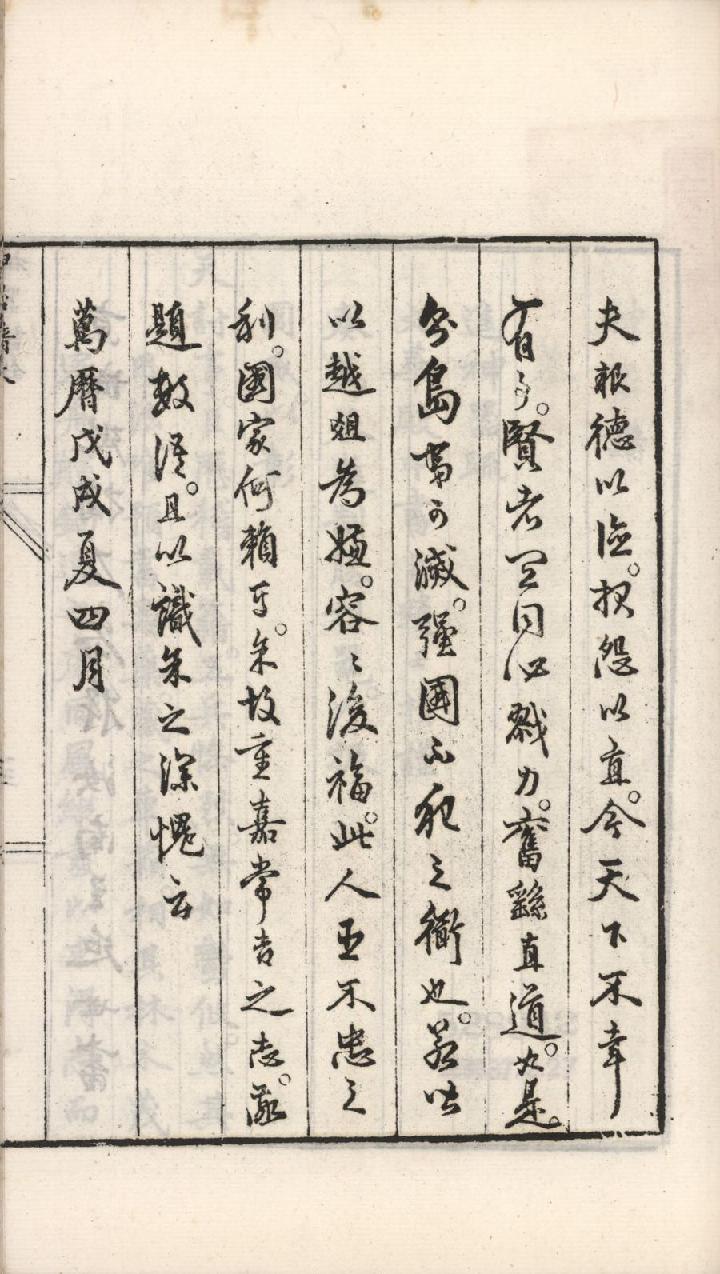 夫報德以德。抧怨以直。今天下不幸
有事。賢者宜同心戮力。奮繇直道。如是。
島寄可滅。强國不犯之衝也。若以
以越爼為嫌。容〻後福。此人臣不忠之
利。國家何賴焉。余故重嘉常吉之志。敢
題數語。且以識余之深愧云
萬曆戊戌夏四月